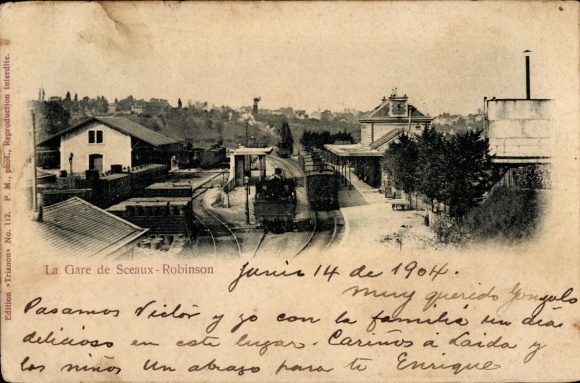 Edition »Trianon« No. 112. P. M., phot., Reproduction interdite.
La Gare de Sceaux-Robinson
Junio 14 de 1904.
Muy querido Gonzalo
Pasamos Victór y yo con la familia un dia
delicioso en este lugar. Cariños á Laida y
los niños un abrazo para ti Enrique